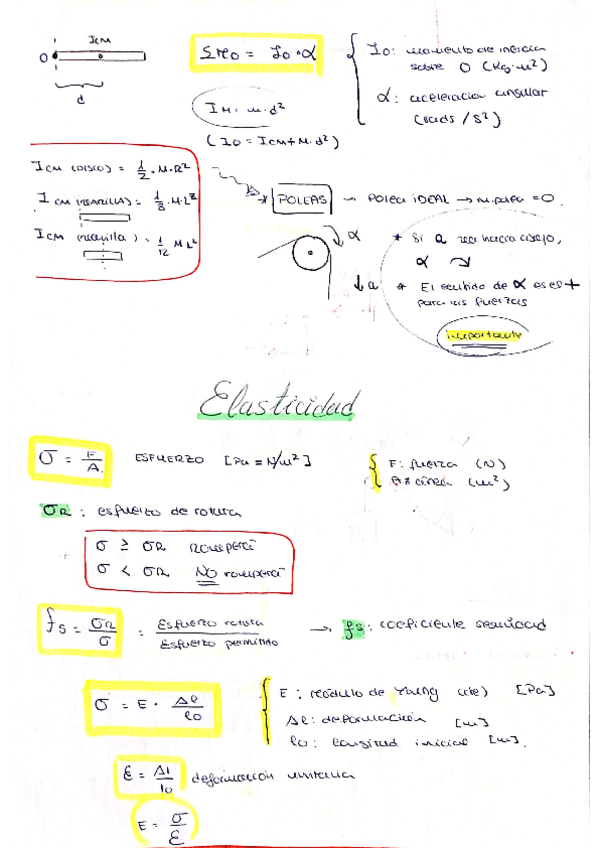 I CM
O
d
ΣMO = IO · α
IM = M·d²
(IO = ICM + M·d²)
IO: momento de inercia
sobre O (Kg·m²)
α: aceleración angular
(rads/s²)
I CM (DISCO) = 1/2 · M·R²
I CM (VARILLA) = 1/3 · M·L²
I CM (varilla) = 1/12 M L²
* POLEAS → Polea IDEAL → m.polea = 0.
α
↓ a
* Si a va hacia abajo,
α
* El sentido de α es el +
para las fuerzas
importante
Elasticidad
σ = F/A. ESFUERZO [Pa = N/m²]
F: fuerza (N)
A: área (m²)
σR : esfuerzo de rotura
σ ≥ σR romperá
σ < σR NO romperá
fs = σR/σ = Esfuerzo rotura/Esfuerzo permitido → fs: coeficiente seguridad
σ = E · Δl/lo
E : módulo de Young (cte) [Pa]
Δl: deformación [m]
lo: longitud inicial [m].
ε = Δl/lo deformación unitaria
E = σ/ε